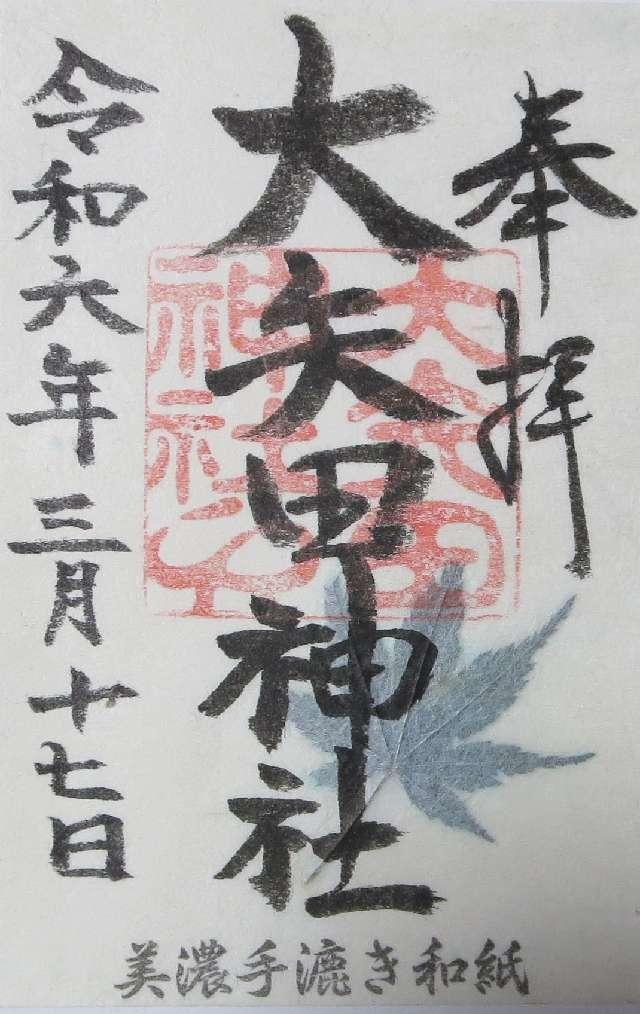 奉拝
大矢田神社
令和六年三月十七日
美濃手漉き和紙